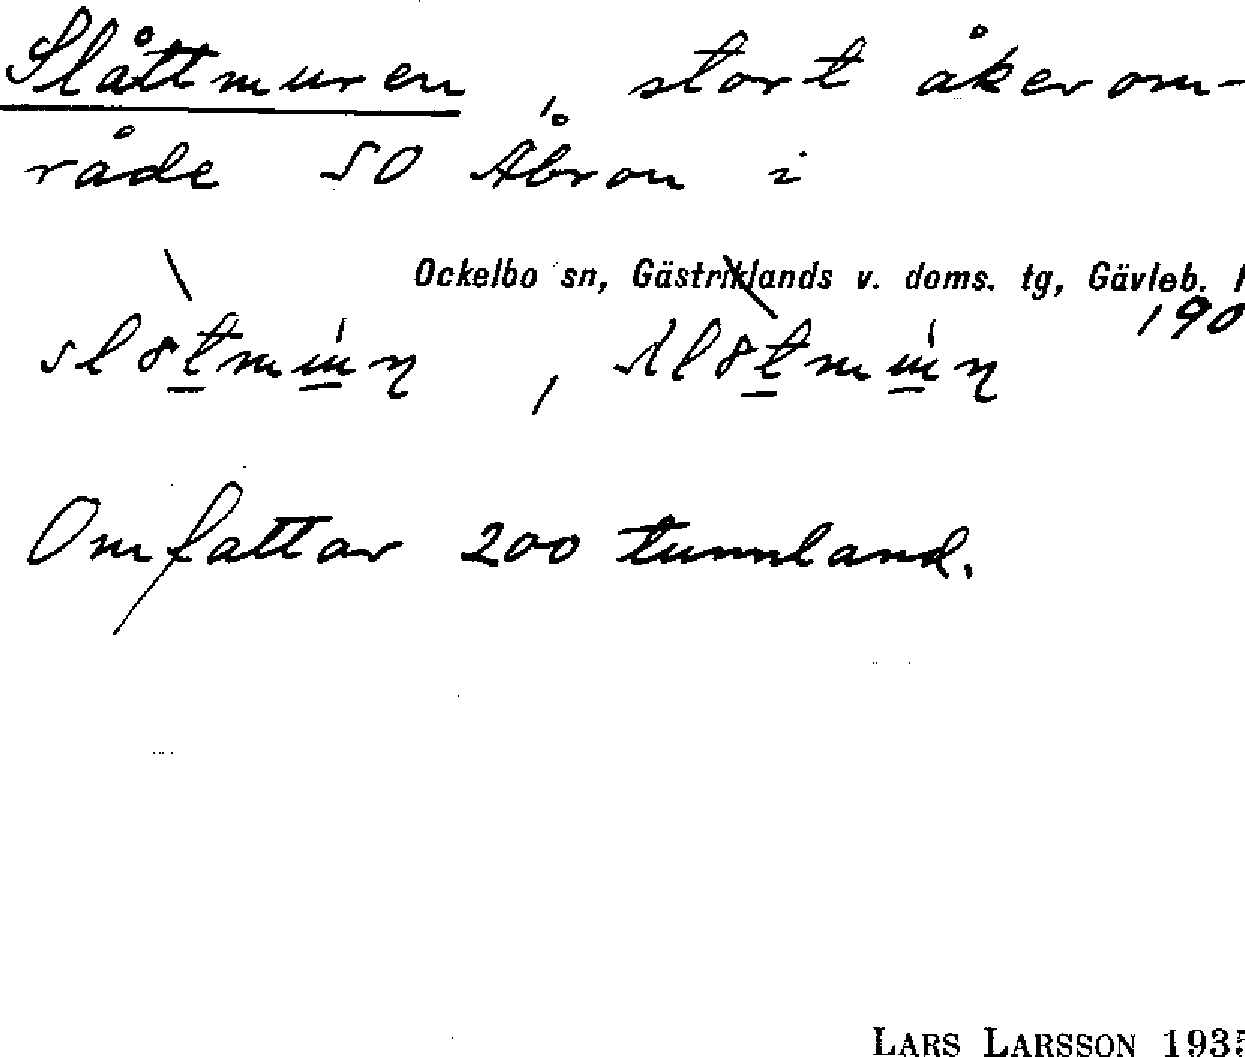 Slåttmuren, stort åkerom-
råde SO Åbron i
Ockelbo sn, Gästriklands v. doms. tg, Gävleb. l
190
Omfattar 200 tunnland.
LARS LARSSON 193